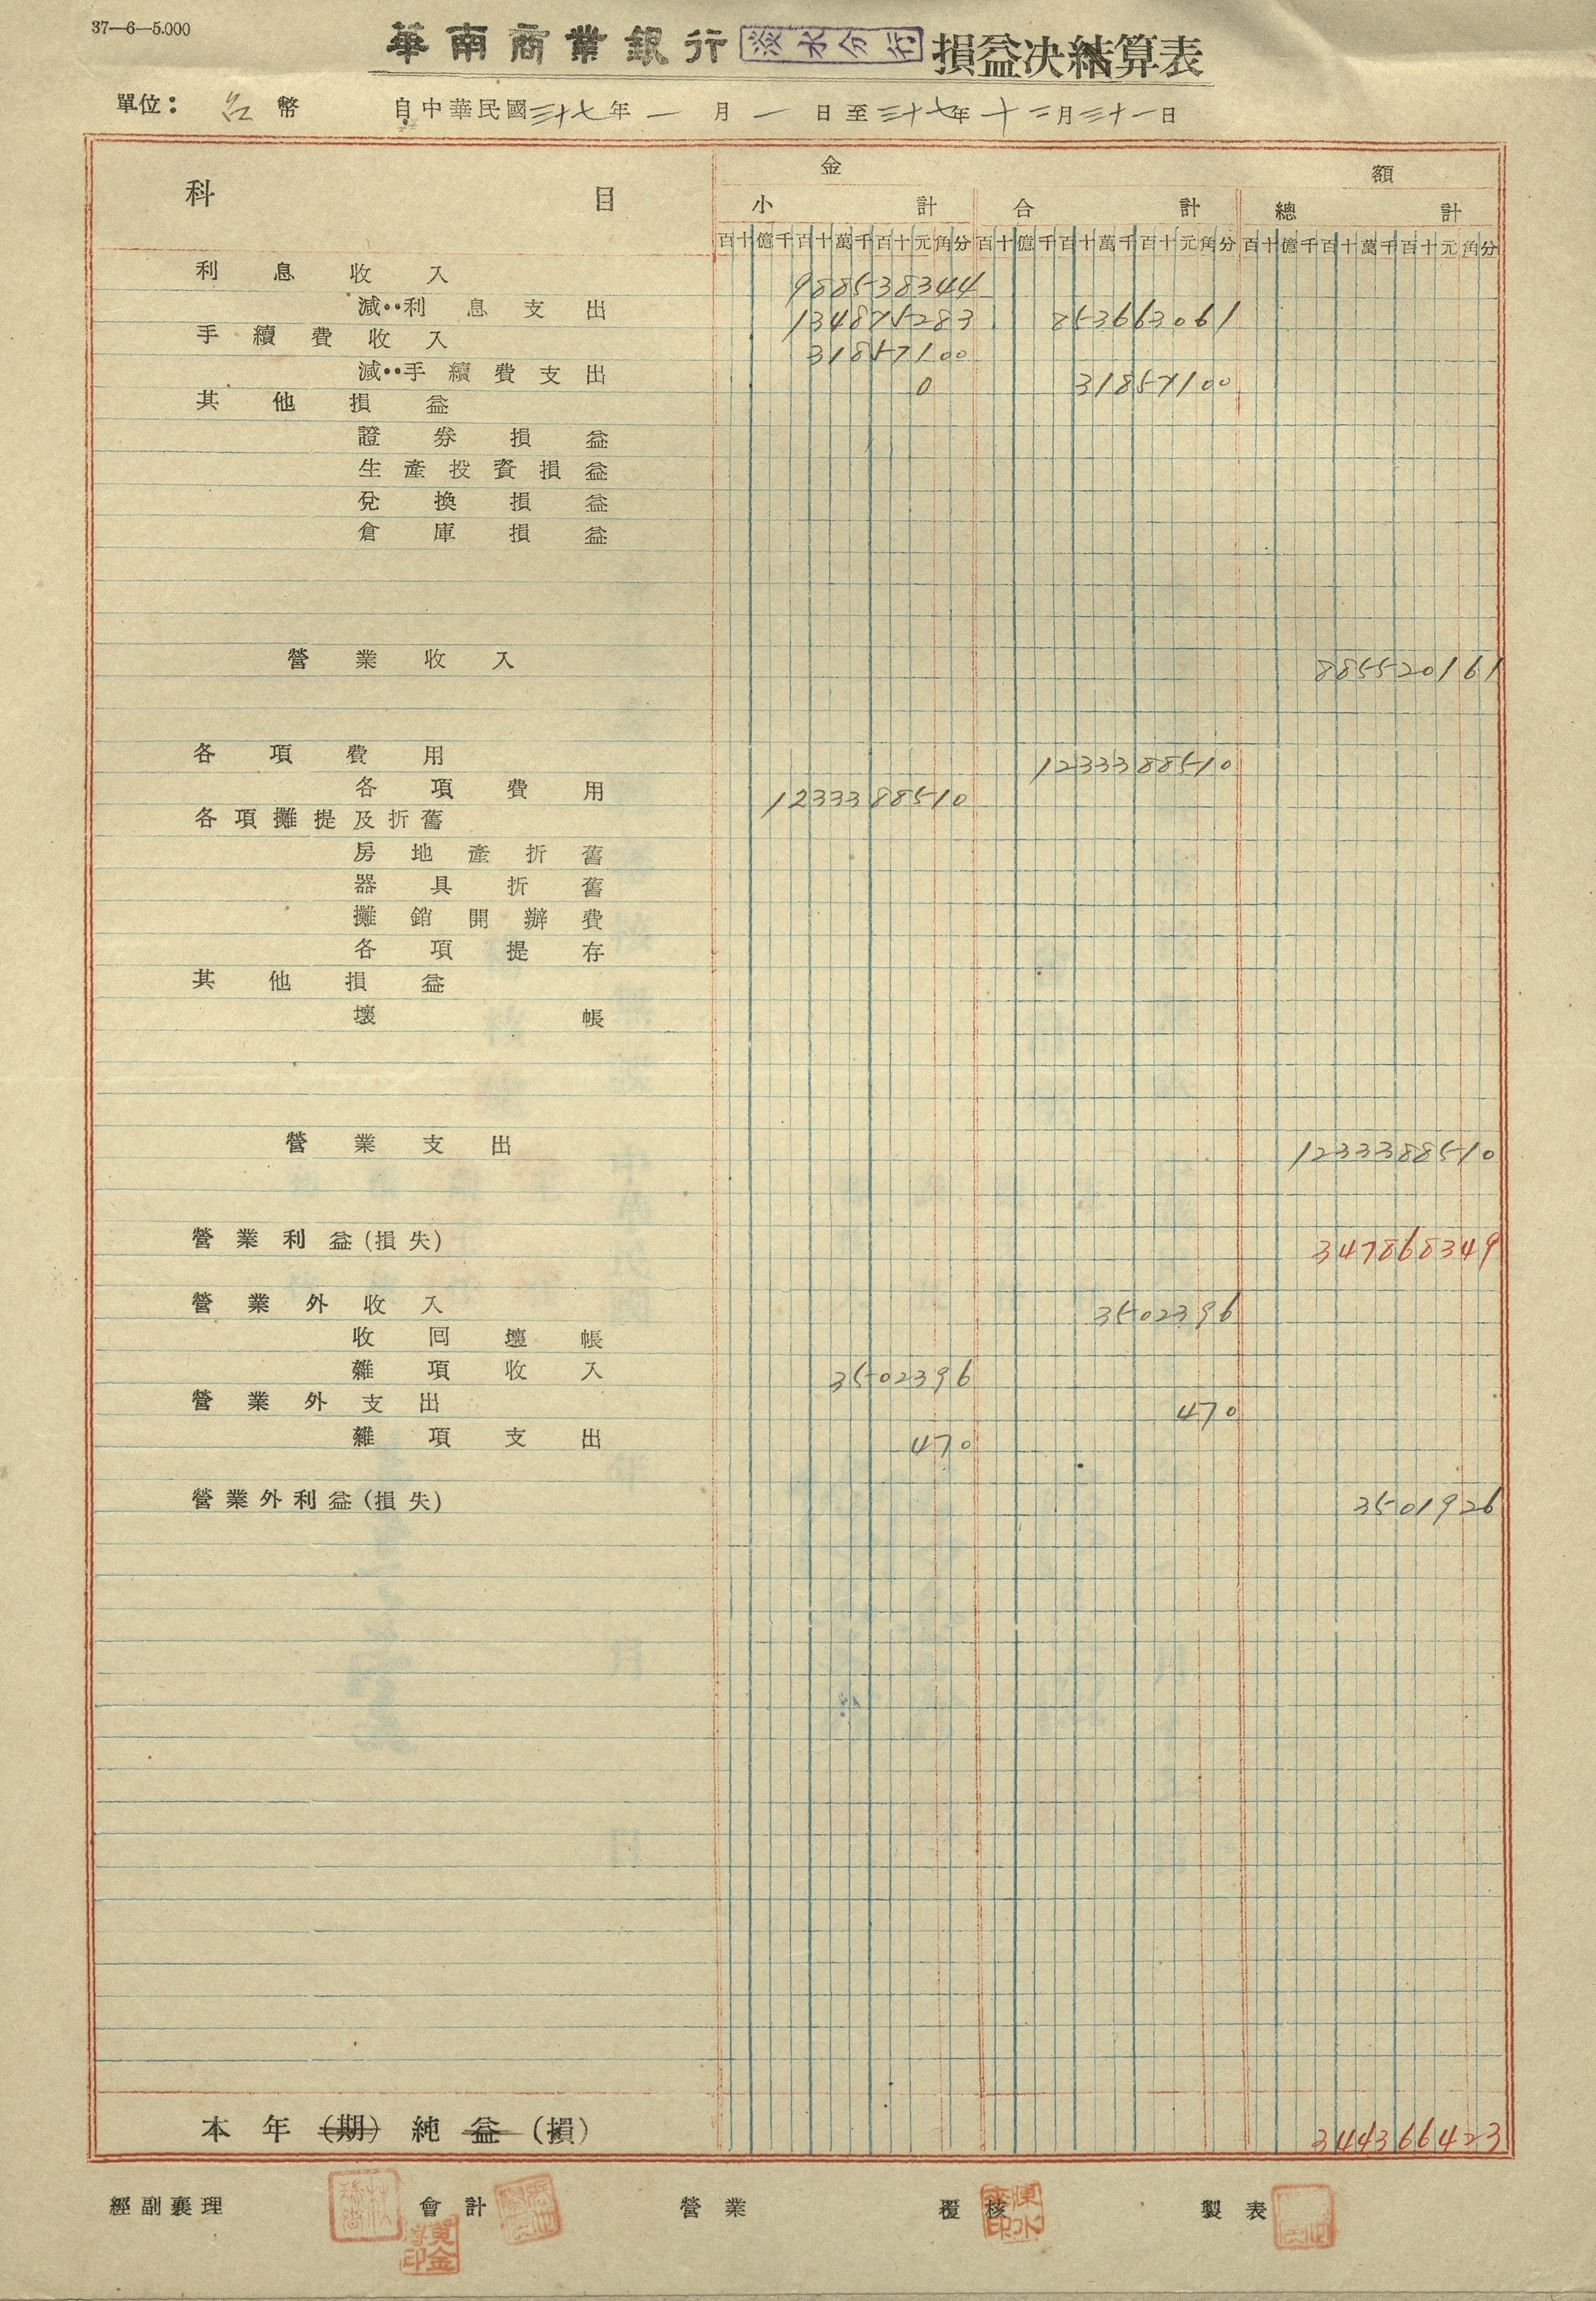 37—6—5.000
華南商業銀行 淡水分行 損益决結算表
單位：台幣 自中華民國三十七年一月一日至三十七年十二月三十一日
科目 金額
小計 合計 總計
百十億千百十萬千百十元角分 百十億千百十萬千百十元角分 百十億千百十萬千百十元角分
利息收入 988538344
減：利息支出 134875283 853663061
手續費收入 31857100
減：手續費支出 0 31857100
其他損益
證券損益
生產投資損益
兌換損益
倉庫損益
營業收入 885520161
各項費用 1233388510
各項費用 1233388510
各項攤提及折舊
房地產折舊
器具折舊
攤銷開辦費
各項提存
其他損益
壞帳
營業支出 1233388510
營業利益(損失) 347868349
營業外收入 3502396
收回壞帳
雜項收入 3502396
營業外支出 470
雜項支出 470
營業外利益(損失) 3501926
本年(期)純益(損) 344366423
經副襄理 會計 營業 覆核 製表